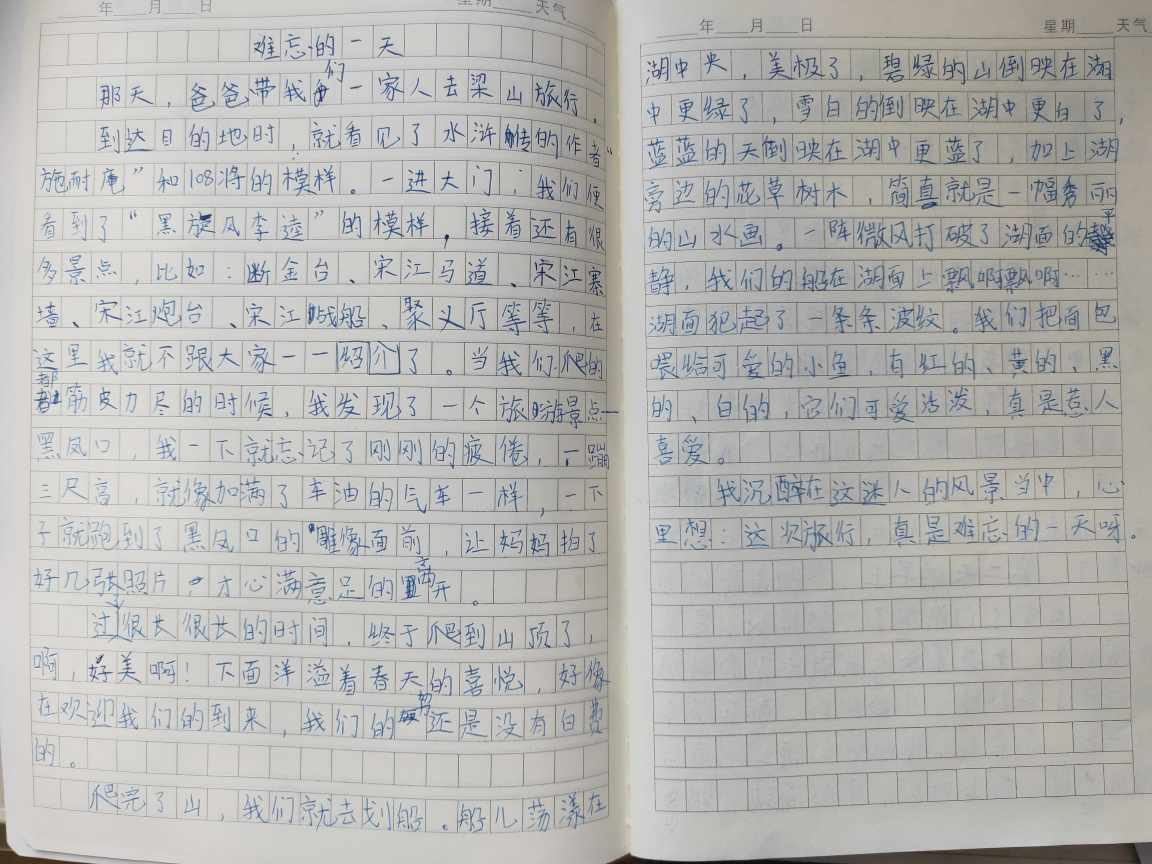 年 月 日 星期 天气
难忘的一天
那天，爸爸带我们一家人去梁山旅行。
到达目的地时，就看见了水浒传的作者“
施耐庵”和108将的模样。一进大门，我们便
看到了“黑旋风李逵”的模样，接着还有很
多景点，比如：断金台、宋江马道、宋江寨
墙、宋江炮台、宋江战船、聚义厅等等，在
这里我就不跟大家一一绍介了。当我们爬的
都筋皮力尽的时候，我发现了一个旅游景点一
黑风口，我一下就忘记了刚刚的疲倦，一蹦
三尺高，就像加满了车油的汽车一样，一下
子就跑到了黑风口的雕像面前，让妈妈拍了
好几张照片，才心满意足的离开。
过了很长很长的时间，终于爬到山顶了，
啊，好美啊！下面洋溢着春天的喜悦，好像
在欢迎我们的到来，我们的努还是没有白费
的。
爬完了山，我们就去划船。船儿荡漾在
年 月 日 星期 天气
湖中央，美极了，碧绿的山倒映在湖
中更绿了，雪白的倒映在湖中更白了，
蓝蓝的天倒映在湖中更蓝了，加上湖
旁边的花草树木，简真就是一幅秀丽
的山水画。一阵微风打破了湖面的平
静，我们的船在湖面上飘啊飘啊……
湖面犯起了一条条波纹。我们把面包
喂给可爱的小鱼，有红的、黄的、黑
的、白的，它们可爱活泼，真是惹人
喜爱。
我沉醉在这迷人的风景当中，心
里想：这次旅行，真是难忘的一天呀。